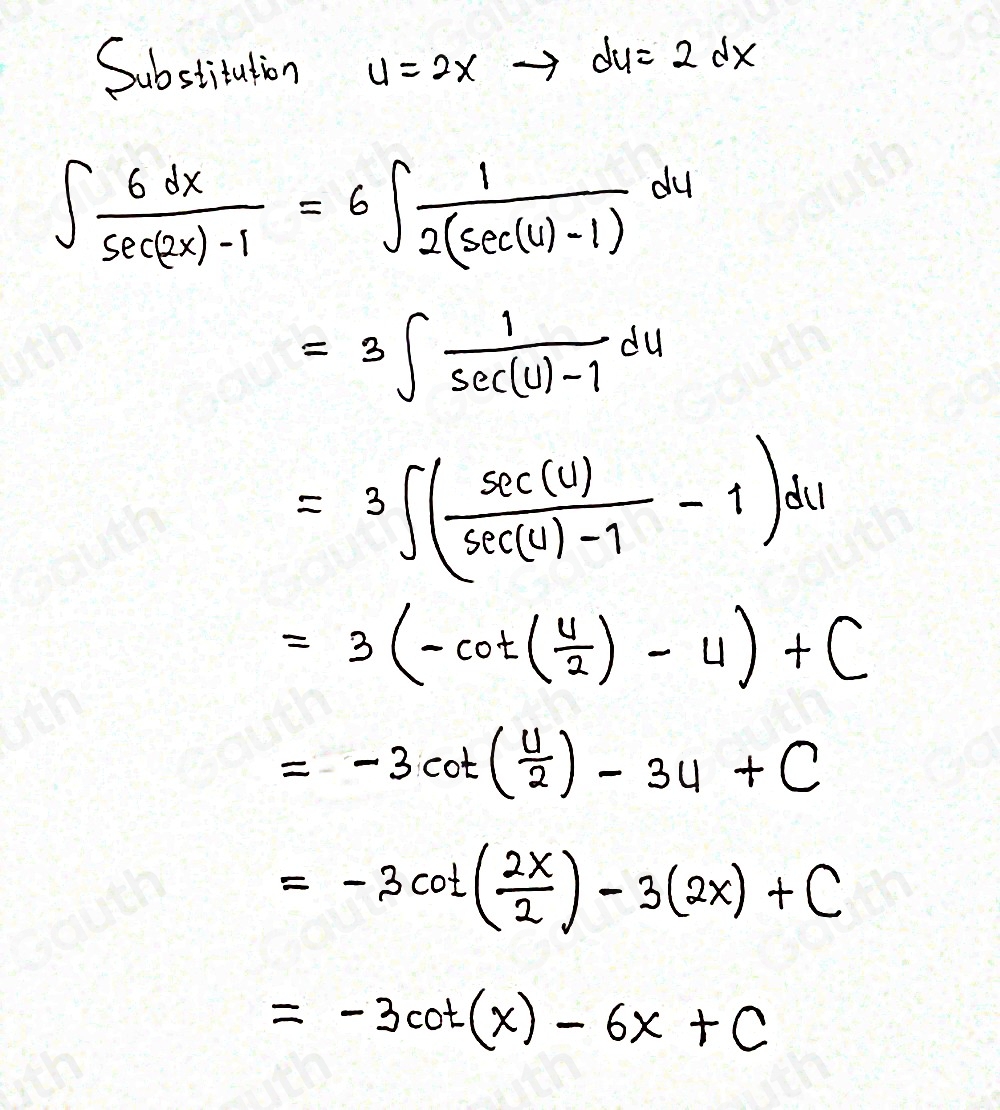 Substitution u = 2x → du = 2 dx
∫ 6 dx / (sec(2x) - 1) = 6 ∫ 1 / (2(sec(u) - 1)) du
= 3 ∫ 1 / (sec(u) - 1) du
= 3 ∫ (sec(u) / (sec(u) - 1) - 1) du
= 3 (-cot(u/2) - u) + C
= -3 cot(u/2) - 3u + C
= -3 cot(2x/2) - 3(2x) + C
= -3 cot(x) - 6x + C
Gauth